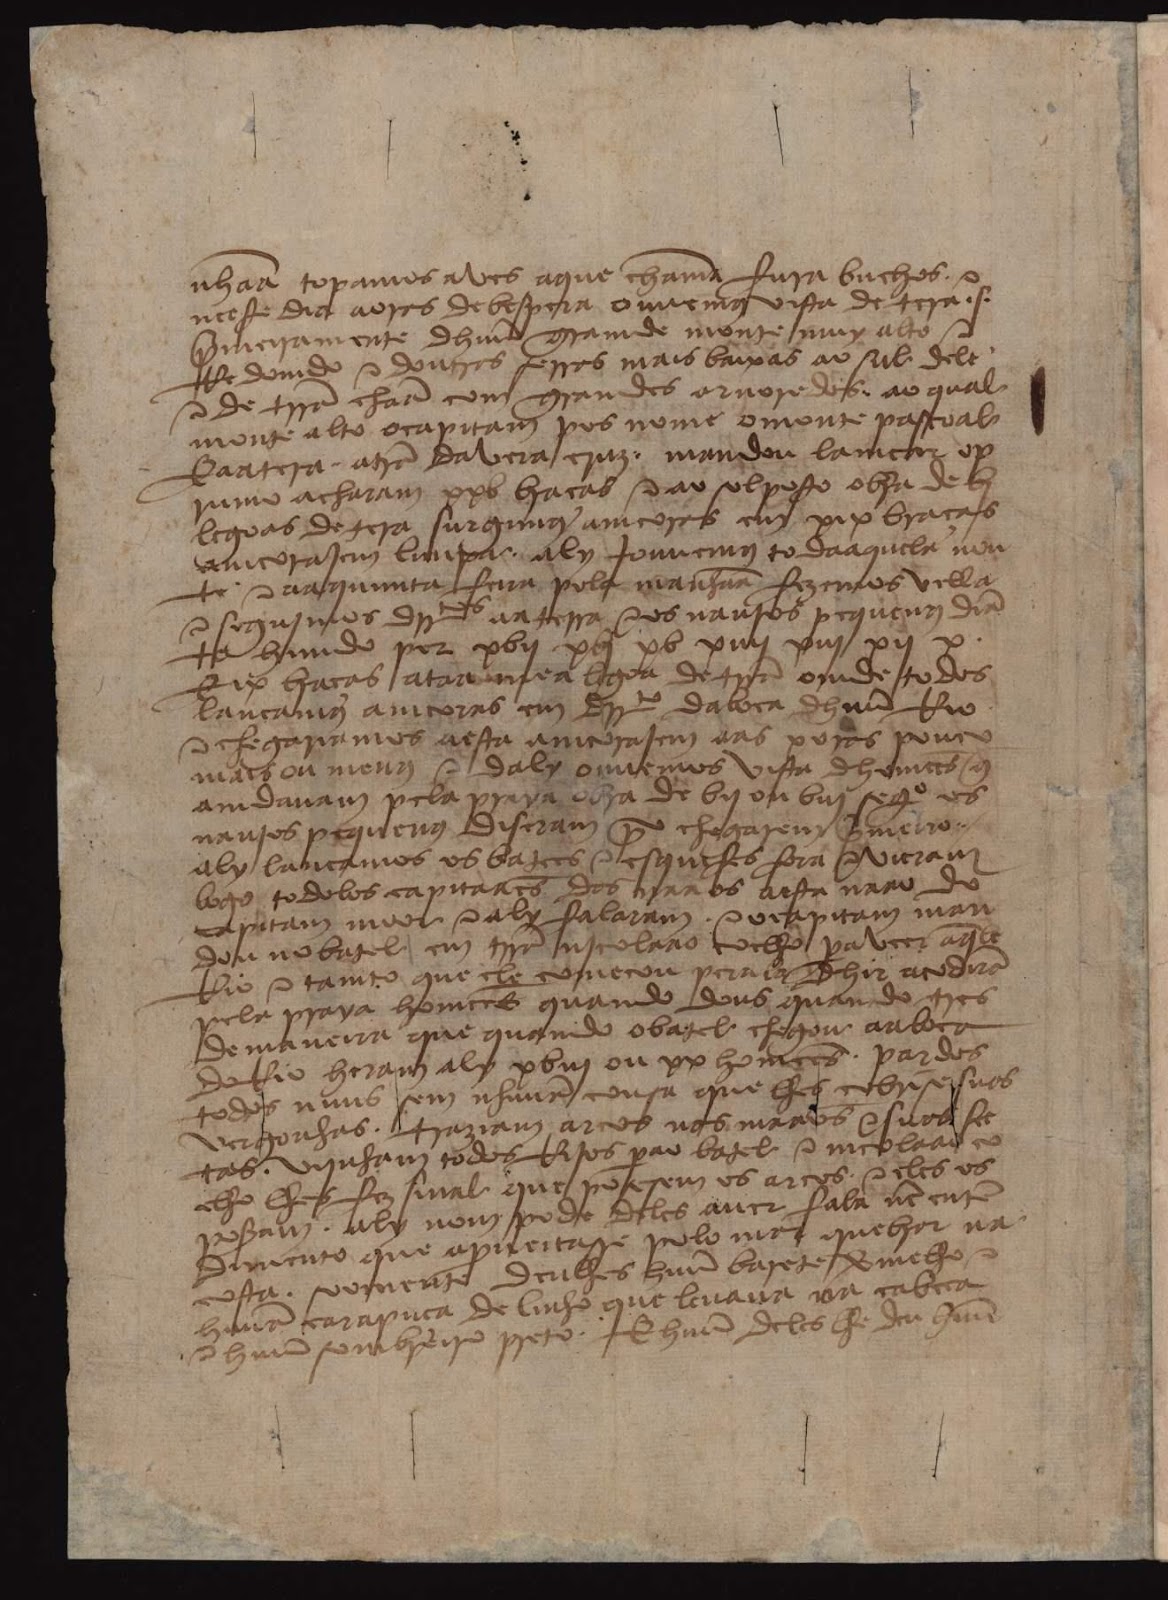 nhaã topamos aves aque chamã fura buchos. ⁊
neeste dia aoras de bespera ouuemos vista de tera .s.
primeiramente dhuũ gramde monte muy alto ⁊
Redomdo ⁊ doutras serras mais baixas ao sul dele
⁊ de trrã chaã com grandes aruoredos. ao qual
monte alto ocapitam pos nome omonte pascoal
E aatera. atrã davera cruz. mandou lamcar op
rumo acharam xxb bracas ⁊ ao sol posto obra de bj
legoas de tera surgimos amcoras em xix braças
amcorajem limpa. aly jouuemos todaaquela nou
te ⁊ aaquimta feira pola manhaã fezemos vella
⁊ segujmos drrtos aaterra ⁊ os naujos pequenos diã
te himdo per xbij xbj xb xiiij xiij xij x.
E ix bracas ataa mea legoa de trrã omde todos
lancamos amcoras em drrto daboca dhuũ Rio
⁊ chegariamos aesta amcorajem aas x oras pouco
mais ou menos ⁊ daly ouuemos vista dhomeẽs q̃
amdauam pela praya obra de bij ou biij segº os
nauios pequenos diseram por chegarem primeiro.
aly lancamos os batees ⁊ esquifes fora ⁊ vieram
logo todolos capitaães das naaos aesta naao do
capitam moor ⁊ aly falaram. ⁊ ocapitam man
dou no batel em trrã nicolaao coelho pa veer aq̃le
Rio ⁊ tamto que ele comecou pera la dhir acodirã
pela praya homeẽs quando dous quando tres
de maneira que quando obatel chegou aaboca
do Rio heram aly xbiij ou xx homeẽs. pardos
todos nuus sem nhuũa cousa que lhes cobrise suas
vergonhas. traziam arcos nas maãos ⁊ suas see
tas. vijnham todos Rijos pao batel ⁊ nicolaao co
elho lhes fez sinal que posesem os arcos. ⁊ eles os
poseram. aly nom pode deles auer fala nẽ entẽ
dimento que aproveitasse polo mar quebrar na
costa. soomente deulhes huũ barete vermelho ⁊
huũa carapuca de linho que leuaua na cabeca
⁊ huũ sombreiro preto. E huũ deles lhe deu huũ